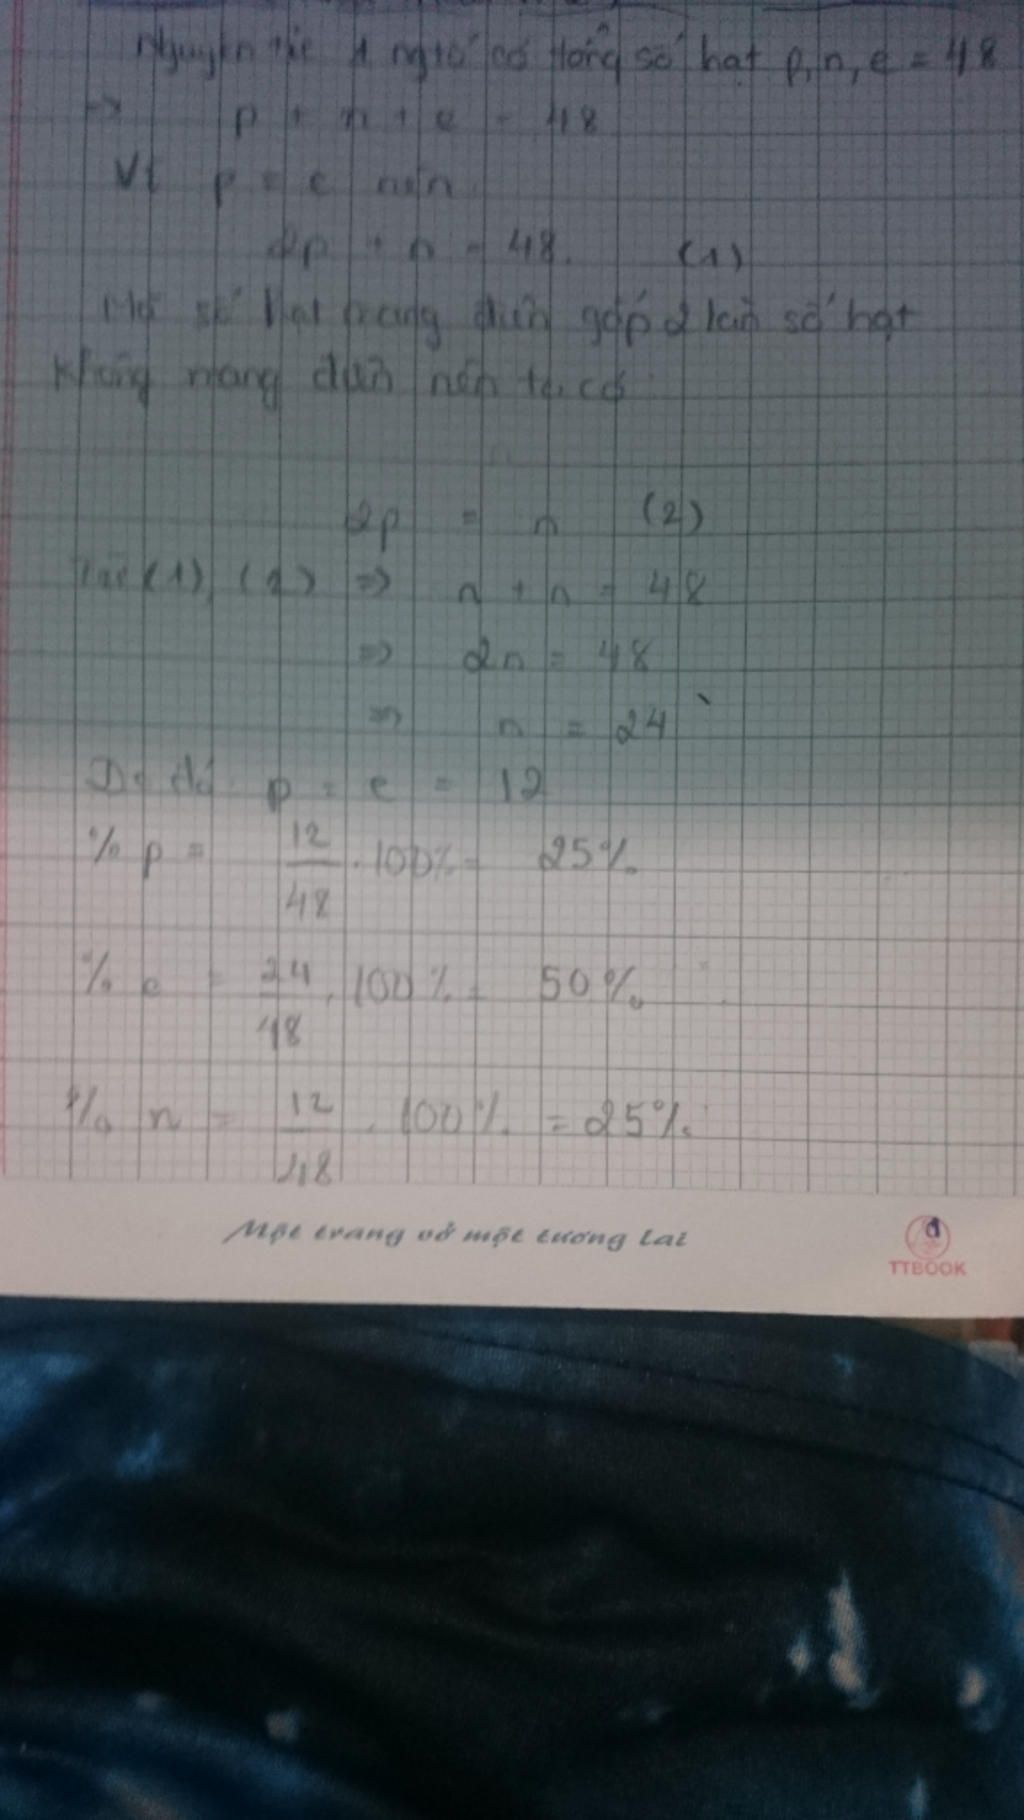 Nguyên tử 1 ngtố có tổng số hạt p, n, e = 48
=> p + n + e = 48
Vì p = e nên
2p + n = 48. (1)
Mà số hạt mang điện gấp 2 lần số hạt
không mang điện nên ta có
2p = n (2)
Từ (1), (2) => n + n = 48
=> 2n = 48
=> n = 24
Do đó p = e = 12
% p = 12/48 . 100% = 25%
% e = 24/48 . 100% = 50%
% n = 12/48 . 100% = 25%
Một trang vở một tương lai
TTBOOK